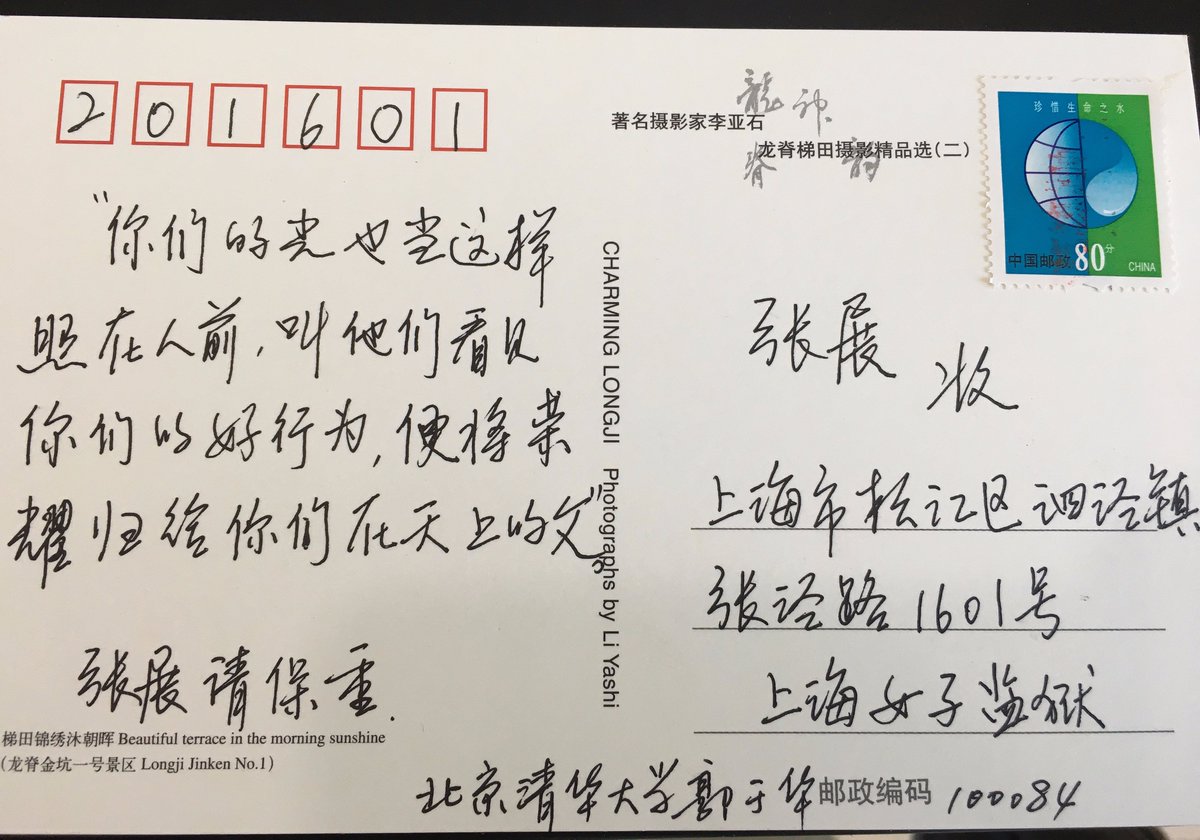 201601
著名摄影家李亚石
龙脊梯田摄影精品选(二)
龍 神
脊 韵
珍惜生命之水
中国邮政 80分
CHINA
“你们的光也当这样
照在人前,叫他们看见
你们的好行为,便将荣
耀归给你们在天上的父”。
张展请保重.
梯田锦绣沐朝晖 Beautiful terrace in the morning sunshine
(龙脊金坑一号景区 Longji Jinken No.1)
CHARMING LONGJI Photographs by Li Yashi
张展 收
上海市松江区泗泾镇
张泾路1601号
上海女子监狱
北京清华大学郭于华 邮政编码 100084